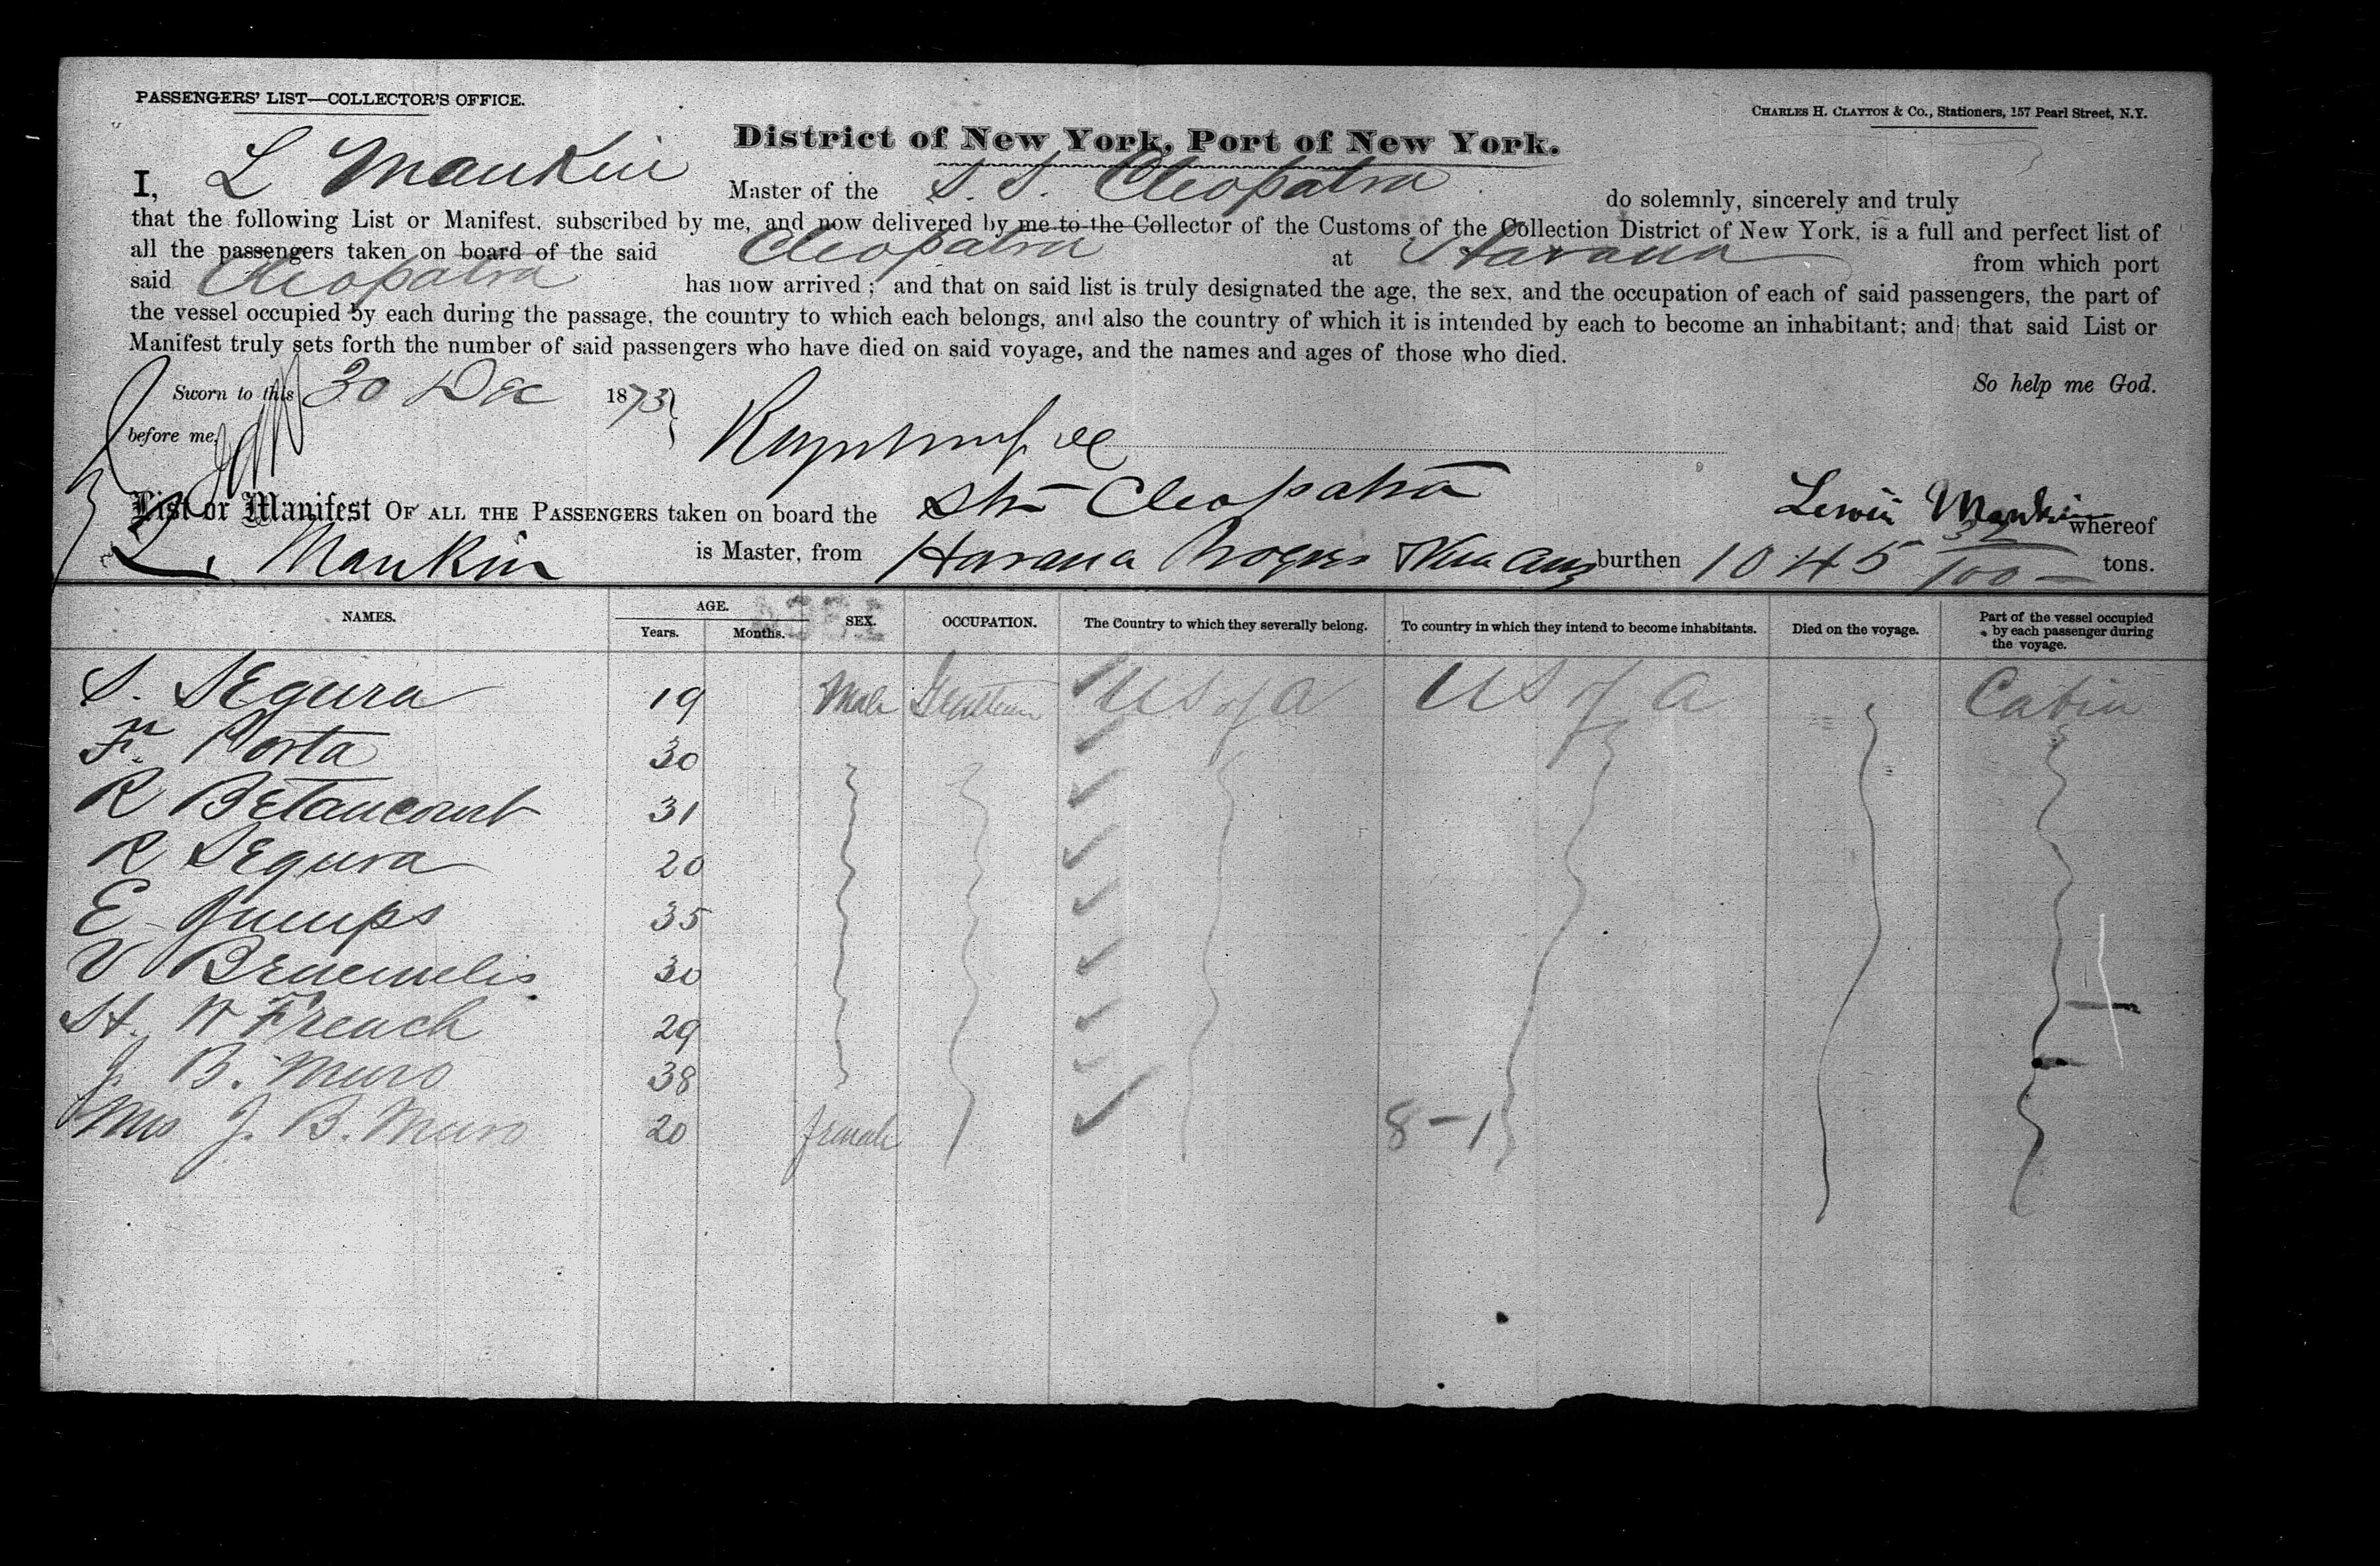 PASSENGERS' LIST—COLLECTOR'S OFFICE.
CHARLES H. CLAYTON & CO., Stationers, 157 Pearl Street, N.Y.
District of New York, Port of New York.
I, L Mankin Master of the S. S. Cleopatra do solemnly, sincerely and truly
that the following List or Manifest, subscribed by me, and now delivered by me to the Collector of the Customs of the Collection District of New York, is a full and perfect list of
all the passengers taken on board of the said Cleopatra at Havana from which port
said Cleopatra has now arrived; and that on said list is truly designated the age, the sex, and the occupation of each of said passengers, the part of
the vessel occupied by each during the passage, the country to which each belongs, and also the country of which it is intended by each to become an inhabitant; and that said List or
Manifest truly sets forth the number of said passengers who have died on said voyage, and the names and ages of those who died.
So help me God.
Sworn to this 30 Dec 1873
before me,
List or Manifest OF ALL THE PASSENGERS taken on board the Str Cleopatra Lewis Mankin whereof
L. Mankin is Master, from Havana Progreso Vera Cruz burthen 1045 32/100 tons.
NAMES. AGE. Years. Months. SEX. OCCUPATION. The Country to which they severally belong. To country in which they intend to become inhabitants. Died on the voyage. Part of the vessel occupied by each passenger during the voyage.
S. Segura 19 Male Gentleman U S of A U S of A Cabin
Fr. Porta 30
R Betancourt 31
R Segura 20
E Jumps 35
V 30
H. W French 29
J. B. Muro 38
Mrs J. B. Muro 20 female 8-1